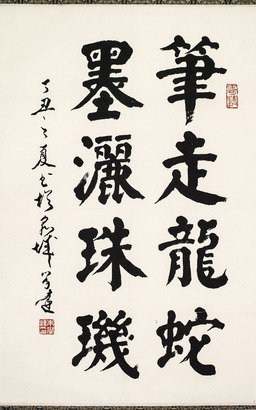 筆走龍蛇
墨灑珠璣
丁丑之夏